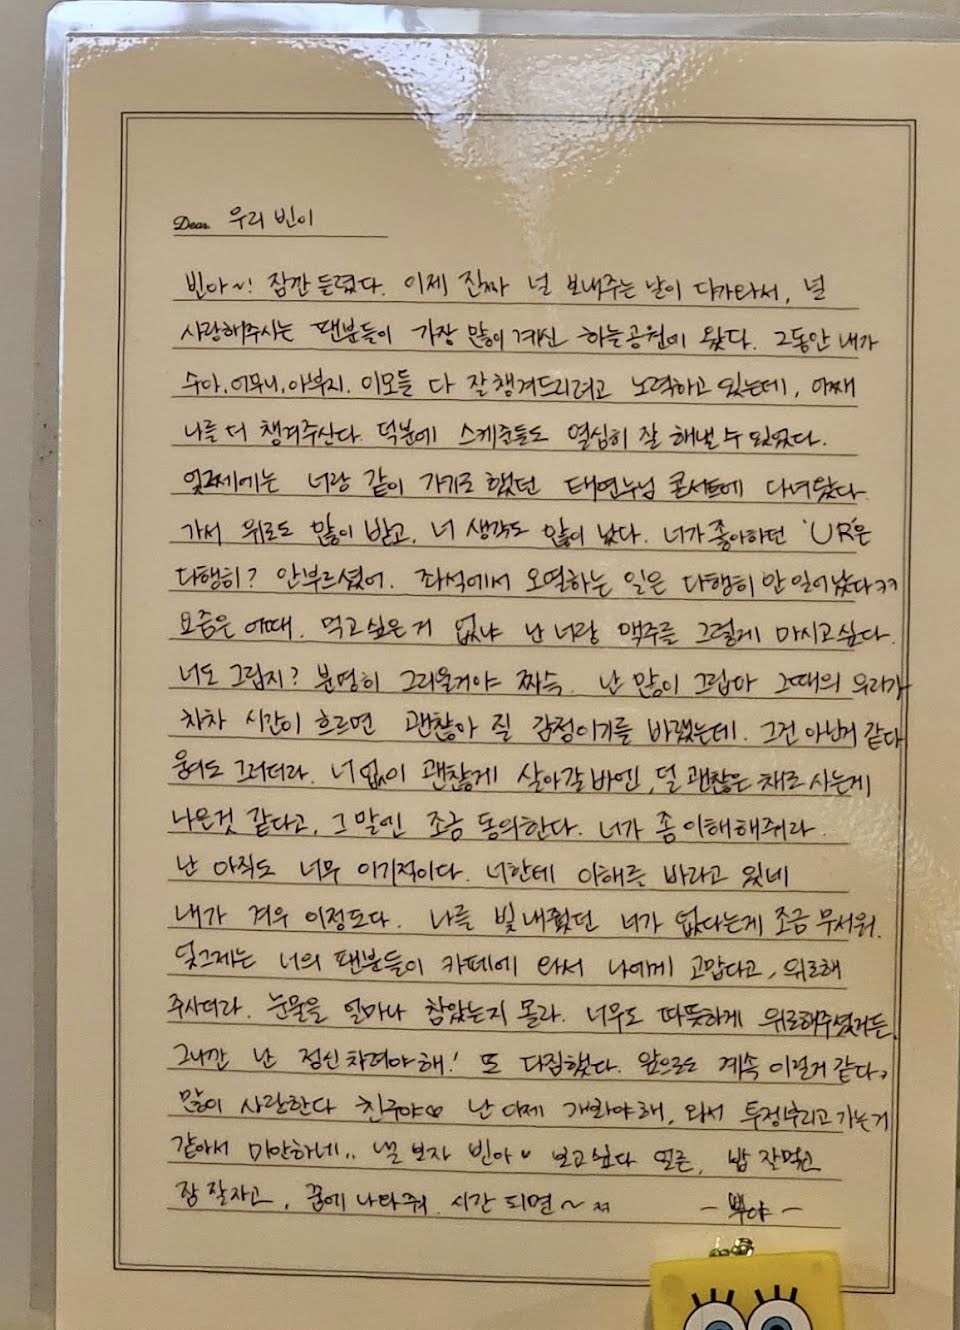 Dear. 우리 빈이
빈아~! 잠깐 들렸다. 이제 진짜 널 보내주는 날이 다가와서, 널
사랑해주시는 팬분들이 가장 많이 계신 하늘공원에 왔다. 그동안 내가
수아, 어머니, 아부지, 이모들 다 잘 챙겨드리려고 노력하고 있는데, 어째
나를 더 챙겨주신다. 덕분에 스케줄들도 열심히 잘 해낼 수 있었다.
엊그제에는 너랑 같이 가기로 했던 태연누님 콘서트에 다녀왔다
가서 위로도 많이 받고, 너 생각도 많이 났다. 너가 좋아하던 'UR'은
다행히? 안부르셨어. 좌석에서 오열하는 일은 다행히 안 일어났다ㅋㅋ
요즘은 어때. 먹고싶은거 없냐 난 너랑 맥주를 그렇게 마시고싶다.
너도 그립지? 분명히 그리울거야 짜슥. 난 많이 그립다 그때의 우리가
차차 시간이 흐르면 괜찮아 질 감정이기를 바랬는데. 그건 아닌거 같다
웅이도 그러더라. 너 없이 괜찮게 살아갈 바엔, 덜 괜찮은 채로 사는게
나은것 같다고, 그 말엔 조금 동의한다. 너가 좀 이해해줘라.
난 아직도 너무 이기적이다. 너한테 이해를 바라고 있네
내가 겨우 이정도다. 나를 빛내줬던 너가 없다는게 조금 무서워.
엊그제는 너의 팬분들이 카페에 와서 나에게 고맙다고, 위로해
주시더라. 눈물을 얼마나 참았는지 몰라. 너무도 따뜻하게 위로해주셨거든.
그니깐 난 정신차려야 해! 또 다짐했다. 앞으로도 계속 이럴거 같다
많이 사랑한다 친구야 난 이제 개화야해, 와서 투정부리고 가는거
같아서 미안하네.. 낼 보자 빈아 보고싶다 얼른, 밥 잘먹고
잠 잘자고, 꿈에 나타나줘. 시간 되면~
- 뿌야 -